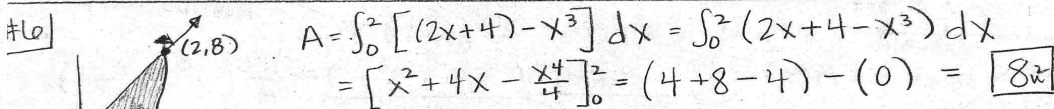 #6 (2,8) A = ∫₀² [(2x+4) - x³] dx = ∫₀² (2x+4-x³) dx
= [x² + 4x - x⁴/4]₀² = (4+8-4) - (0) = 8u²